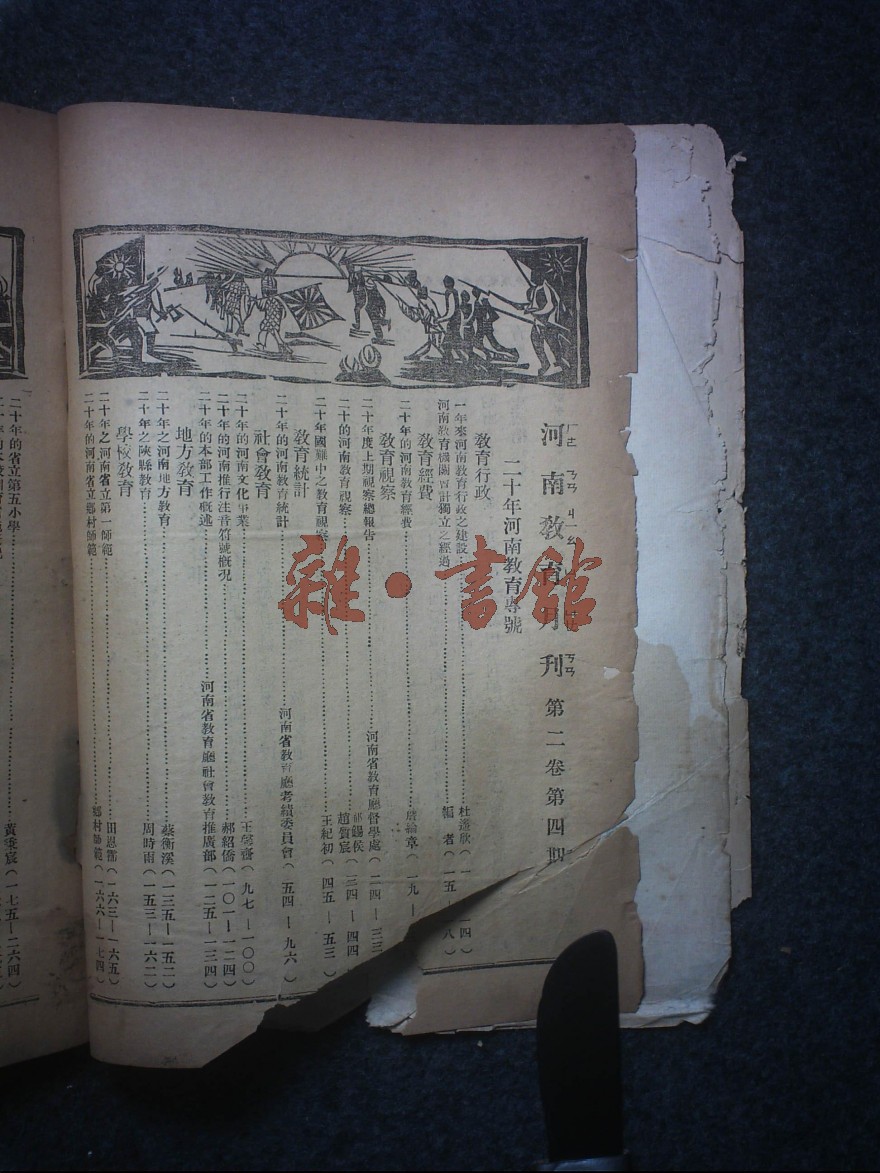 河南教育月刊 第二卷第四期
二十年河南教育專號
教育行政
一年來河南教育行政之建設 (一—一四)
河南教育機關會計獨立之經過 編者(一五—一八)
教育經費
二十年的河南教育經費 (一九—
教育視察
二十年度上期視察總報告 河南省教育廳督學處(二四—三三
二十的河南教育視察 郝錫侯 趙質宸(三四—四四
二十年國難中之教育視察 王紀初(四五—五三)
教育統計
二十年的河南教育統計 河南省教育廳考績委員會(五四—九六)
社會教育
二十年的河南文化事業 (九七—一〇〇)
二十年的河南推行注音符號概況 郝紹僑(一〇一—一二四)
二十年的本部工作概述 河南省教育廳社會教育推廣部(一二五—一三四)
地方教育
二十年之河南地方教育 蔡衡溪(一三五—一五二)
二十年之陝縣教育 周時雨(一五三—一六二)
學校教育
二十年之河南省立第一師範 田恩霈(一六三—一六五)
二十年的河南省立鄉村師範 鄉村師範(一六六—一七四)
二十年的省立第五小學 黃宸(一七五—二六四)
雜·書館